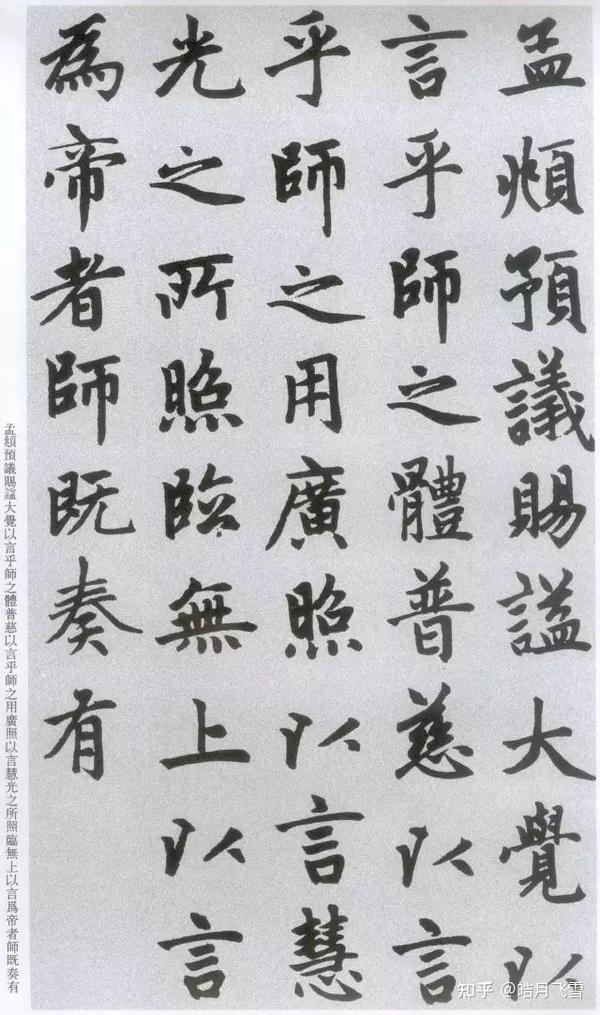 孟頫預議賜謚大覺以
言乎師之體普慈以言
乎師之用廣照以言慧
光之所照臨無上以言
為帝者師既奏有
孟頫預議賜謚大覺以言乎師之體普慈以言乎師之用廣照以言慧光之所照臨無上以言爲帝者師既奏有
知乎 @皓月飞雪